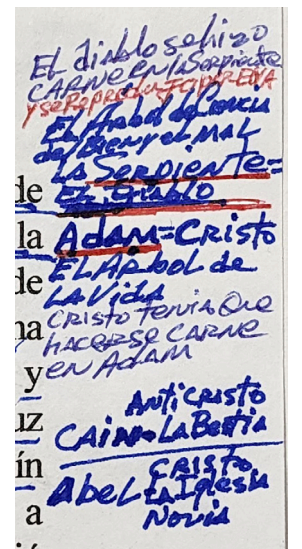 El diablo se hizo
CARNE EN LA Serpiente
y se Reprodujo por EVA
El Arbol de Ciencia
del Bien y el MAL
LA SERPIENTE=
de EL Diablo
la ADAM=CRISTO
de EL Arbol de
LA Vida
na CRISTO TENIA QUE
HACERSE CARNE
y EN ADAM
ANTICRISTO
uz CAIN LA Bestia
ín CRISTO
Abel LA Iglesia
a Novia